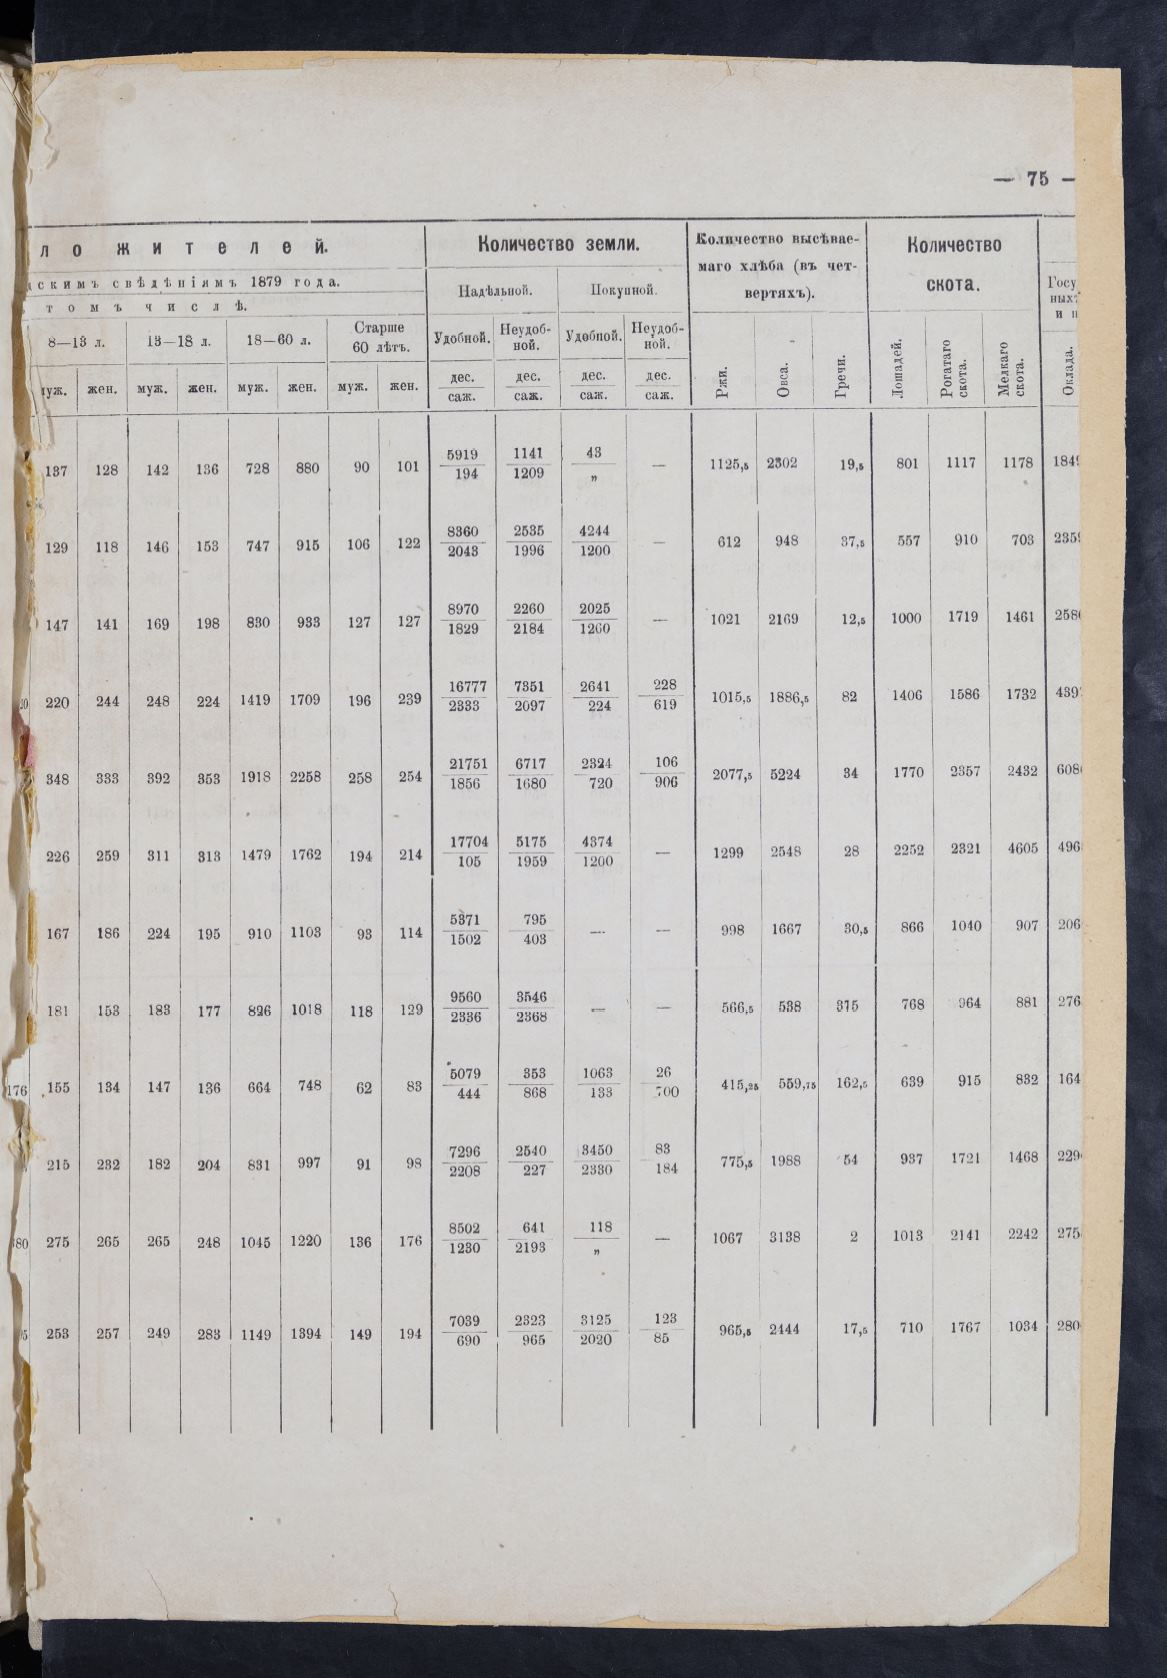 — 75 —
ло жителей.
Количество земли.
Количество высѣвае-
маго хлѣба (въ чет-
вертяхъ).
Количество
скота.
скимъ свѣдѣніямъ 1879 года.
томъ числѣ.
Надѣльной.
Покупной.
Госу
ных
и п
8—13 л.
13—18 л.
18—60 л.
Старше
60 лѣтъ.
Удобной.
Неудоб-
ной.
Удобной.
Неудоб-
ной.
Ржи.
Овса.
Гречи.
Лошадей.
Рогатаго
скота.
Мелкаго
скота.
Оклада.
муж. жен. муж. жен. муж. жен. муж. жен.
дес. дес. дес. дес.
саж. саж. саж. саж.
5919 1141 43
137 128 142 136 728 880 90 101 — 1125,5 2302 19,5 801 1117 1178 1849
194 1209 „
8360 2535 4244
129 118 146 153 747 915 106 122 — 612 948 37,5 557 910 703 2359
2043 1996 1200
8970 2260 2025
147 141 169 198 830 933 127 127 — 1021 2169 12,5 1000 1719 1461 258
1829 2184 1260
16777 7351 2641 228
20 220 244 248 224 1419 1709 196 239 1015,5 1886,5 82 1406 1586 1732 439
2333 2097 224 619
21751 6717 2324 106
348 333 392 353 1918 2258 258 254 2077,5 5224 34 1770 2357 2432 608
1856 1680 720 906
17704 5175 4374
226 259 311 313 1479 1762 194 214 — 1299 2548 28 2252 2321 4605 496
105 1959 1200
5371 795
167 186 224 195 910 1103 93 114 — — 998 1667 30,5 866 1040 907 206
1502 403
9560 3546
181 153 183 177 826 1018 118 129 — — 566,5 538 315 768 964 881 276
2336 2368
5079 353 1063 26
176 155 134 147 136 664 748 62 83 415,25 559,75 162,5 639 915 832 164
444 868 133 700
7296 2540 3450 83
215 232 182 204 831 997 91 98 775,5 1988 54 937 1721 1468 229
2208 227 2330 184
8502 641 118
80 275 265 265 248 1045 1220 136 176 — 1067 3138 2 1013 2141 2242 275
1230 2193 „
7039 2323 3125 123
5 253 257 249 283 1149 1394 149 194 965,5 2444 17,5 710 1767 1034 280
690 965 2020 85